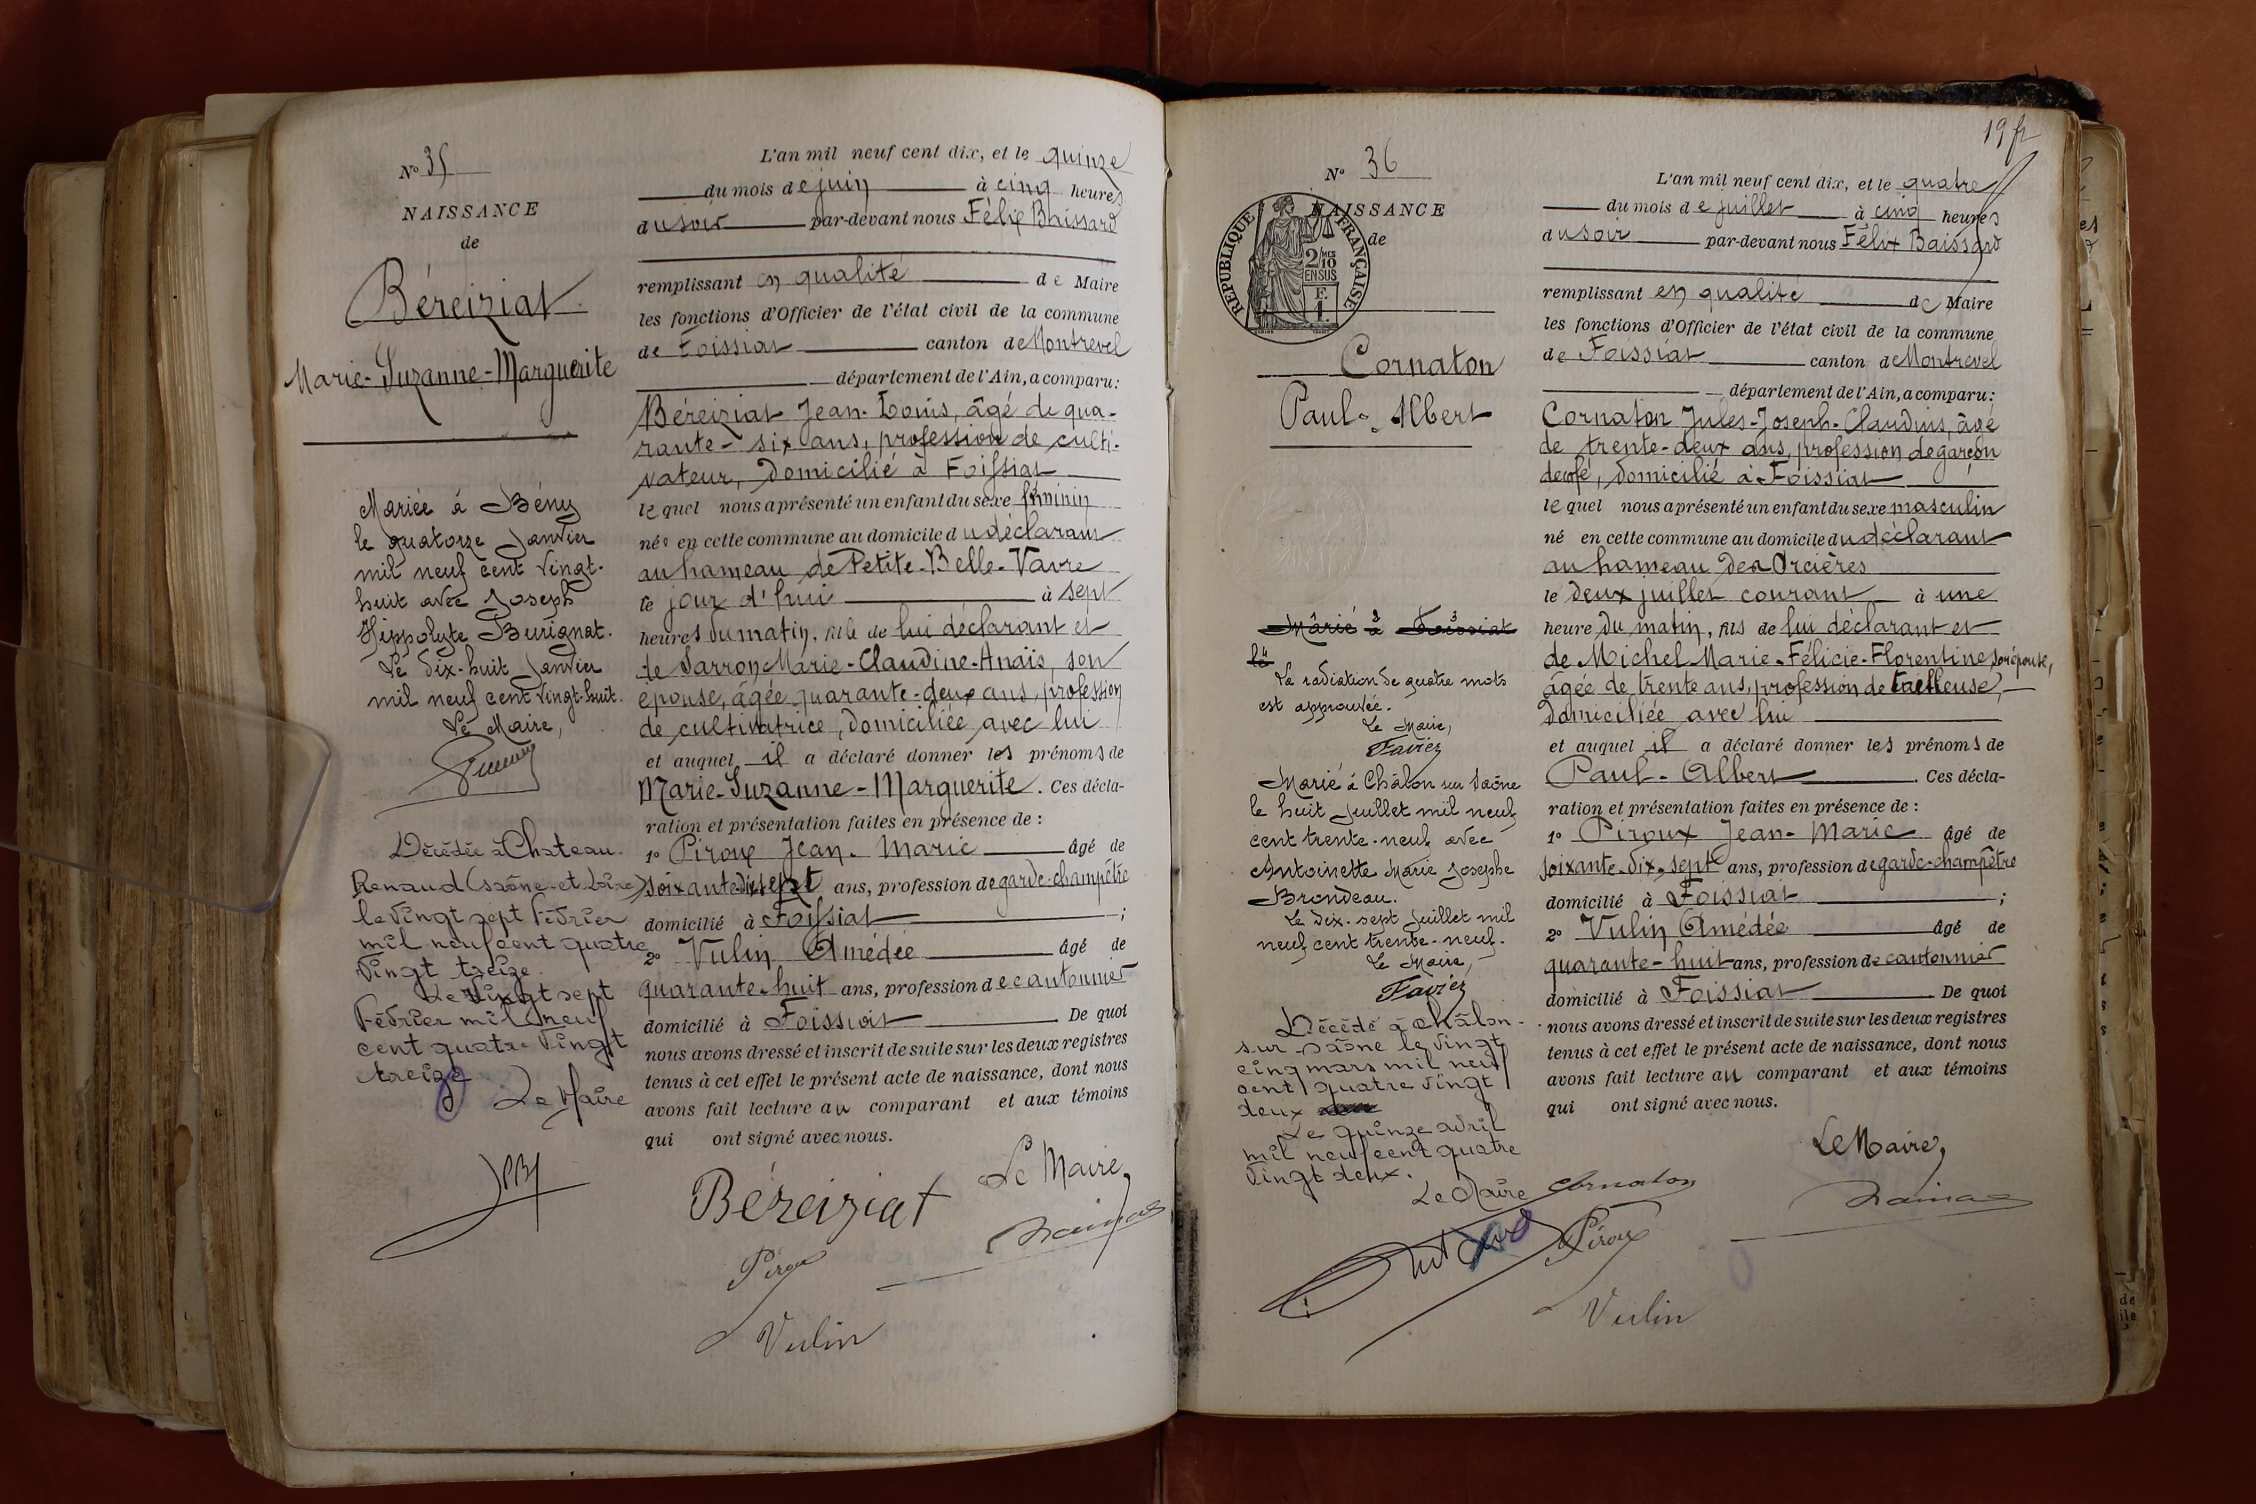 N° 35
NAISSANCE
de
Béreiziat
Marie-Suzanne-Marguerite
Mariée à Bény
le quatorze Janvier
mil neuf cent vingt-
huit avec Joseph
Hippolyte Burignat.
Le dix-huit Janvier
mil neuf cent vingt-huit.
Le Maire,
Décédée à Chateau
Renaud (Saône-et-Loire)
le vingt sept Février
mil neuf cent quatre
vingt treize
Le vingt sept
Février mil neuf
cent quatre vingt
treize
Le Maire
L'an mil neuf cent dix, et le quinze
du mois de juin à cinq heures
du soir par-devant nous Félix Baissard
remplissant en qualité de Maire
les fonctions d'Officier de l'état civil de la commune
de Foissiat canton de Montrevel
département de l'Ain, a comparu:
Béreiziat Jean-Louis, âgé de qua-
rante-six ans, profession de culti-
vateur, domicilié à Foissiat
lequel nous a présenté un enfant du sexe féminin
née en cette commune au domicile du déclarant
au hameau de Petite-Belle-Vavre
le jour d'hui à sept
heures du matin, fille de lui déclarant et
de Sarron Marie-Claudine-Anaïs, son
épouse, âgée quarante-deux ans, profession
de cultivatrice, domiciliée avec lui
et auquel il a déclaré donner les prénoms de
Marie-Suzanne-Marguerite. Ces décla-
ration et présentation faites en présence de :
1° Piroux Jean-Marie âgé de
soixante-dix-sept ans, profession de garde-champêtre
domicilié à Foissiat ;
2° Vulin Amédée âgé de
quarante-huit ans, profession de cantonnier
domicilié à Foissiat De quoi
nous avons dressé et inscrit de suite sur les deux registres
tenus à cet effet le présent acte de naissance, dont nous
avons fait lecture au comparant et aux témoins
qui ont signé avec nous.
Le Maire,
Béreiziat
Piroux
Vulin
19 fr
N° 36
NAISSANCE
de
REPUBLIQUE FRANÇAISE
2/10 MES
EN SUS
F.
1.
Cornaton
Paul-Albert
Marié à Foissiat
le
La radiation de quatre mots
est approuvée.
Le Maire,
Favier
Marié à Châlon sur Saône
le huit Juillet mil neuf
cent trente-neuf avec
Antoinette Marie Josephe
Brondeau.
Le dix-sept Juillet mil
neuf cent trente-neuf.
Le Maire,
Favier
Décédé à Châlon-
sur-Saône le vingt
cinq mars mil neuf
cent quatre vingt
deux
Le quinze avril
mil neuf cent quatre
vingt deux.
Le Maire
L'an mil neuf cent dix, et le quatre
du mois de juillet à cinq heures
du soir par-devant nous Félix Baissard
remplissant en qualité de Maire
les fonctions d'Officier de l'état civil de la commune
de Foissiat canton de Montrevel
département de l'Ain, a comparu:
Cornaton Jules-Joseph-Claudius, âgé
de trente-deux ans, profession de garçon
de café, domicilié à Foissiat
lequel nous a présenté un enfant du sexe masculin
né en cette commune au domicile du déclarant
au hameau des Orcières
le deux juillet courant à une
heure du matin, fils de lui déclarant et
de Michel Marie-Félicie-Florentine, son épouse,
âgée de trente ans, profession de tailleuse,
domiciliée avec lui
et auquel il a déclaré donner les prénoms de
Paul-Albert. Ces décla-
ration et présentation faites en présence de :
1° Piroux Jean-Marie âgé de
soixante-dix-sept ans, profession de garde-champêtre
domicilié à Foissiat ;
2° Vulin Amédée âgé de
quarante-huit ans, profession de cantonnier
domicilié à Foissiat. De quoi
nous avons dressé et inscrit de suite sur les deux registres
tenus à cet effet le présent acte de naissance, dont nous
avons fait lecture au comparant et aux témoins
qui ont signé avec nous.
Le Maire,
Cornaton
Piroux
Vulin